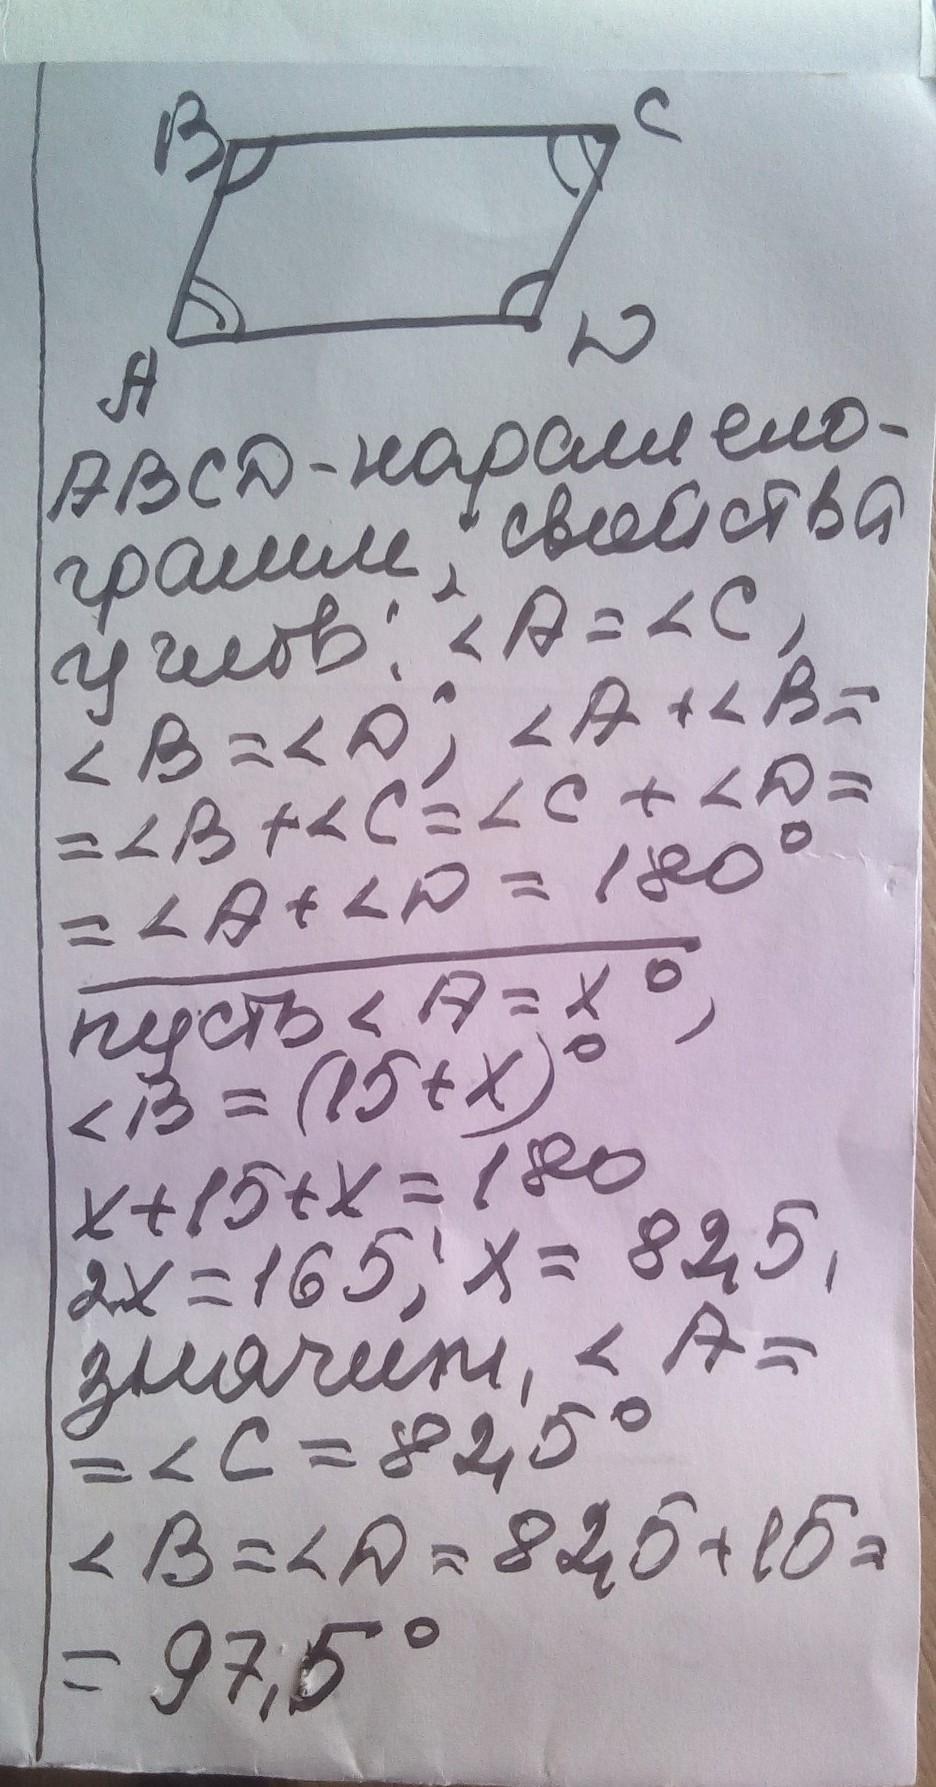 B C
A D
ABCD - параллело-
грамм; свойства
углов: <A = <C,
<B = <D; <A + <B =
= <B + <C = <C + <D =
= <A + <D = 180°
пусть <A = x°,
<B = (15 + x)°
x + 15 + x = 180
2x = 165; x = 82,5,
значит, <A =
= <C = 82,5°
<B = <D = 82,5 + 15 =
= 97,5°